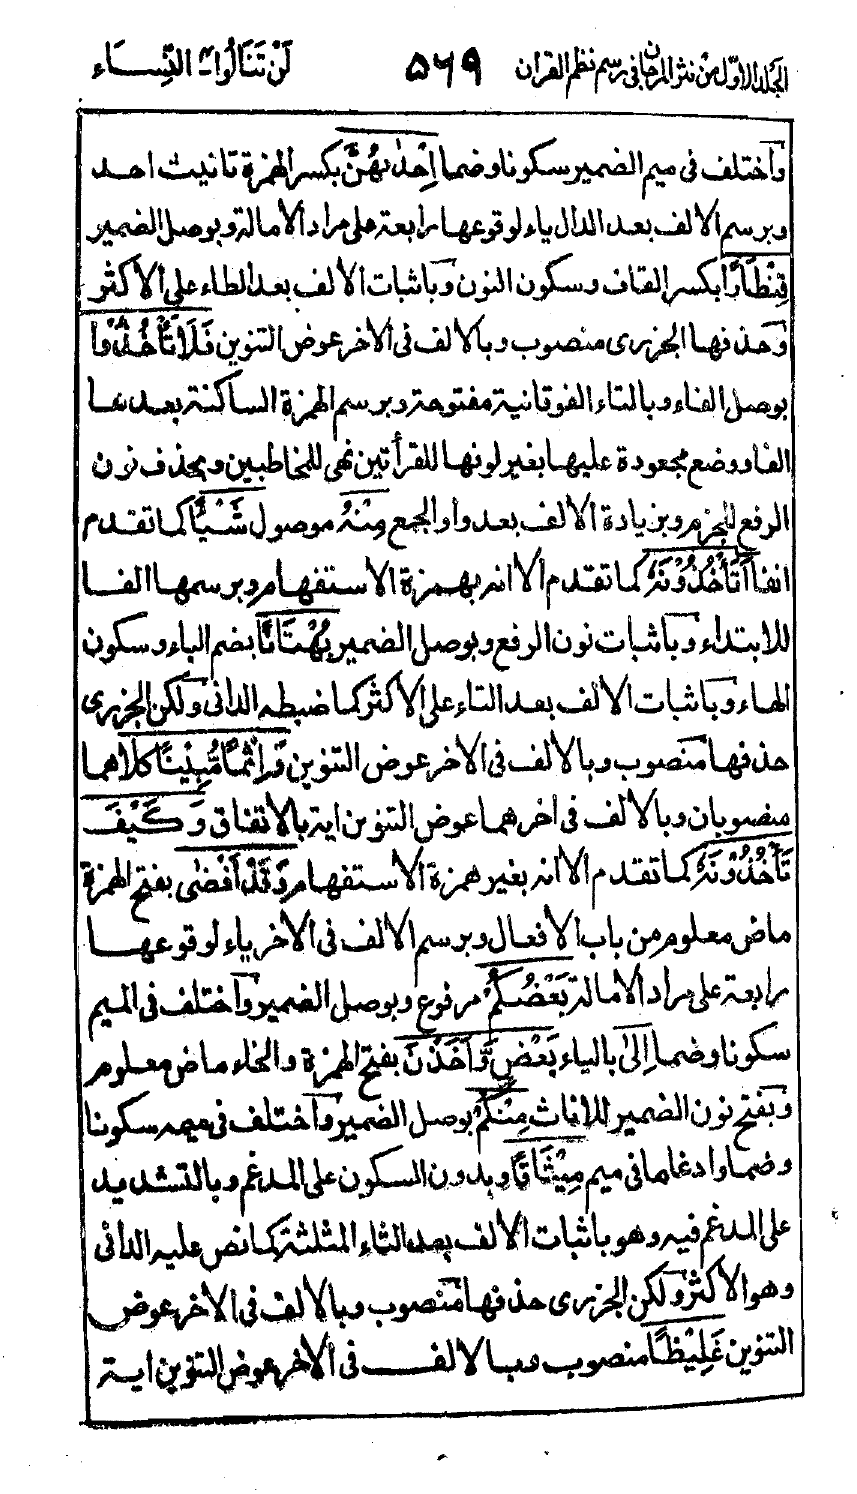 المجلد الاوّل من نثر المرجان فى رسم نظم القران ٥٦٩ لَنْ تَنَالُوا۴ النِّسَاء
وَاختلف فى ميم الضمير سكونا وضما اِحْدٰىهُنَّ بكسر الهمزة تانيث احد
وبرسم الالف بعد الدال ياء لوقوعها رابعة على مراد الامالة وبوصل الضمير
قِنْطَارًا بكسر القاف وسكون النون وَباثبات الالف بعد الطاء على الاكثر
وَحذفها الجزرى منصوب وبالالف فى الاخر عوض التنوين فَلَا تَأْخُذُوْا
بوصل الفاء وبالتاء الفوقانية مفتوحة وبرسم الهمزة الساكنة بعدها
الفا ووضع مجعودة عليها بغير لونها للقرأتين نهى للمخاطبين وبحذف نون
الرفع للجزم وبزيادة الالف بعد واو الجمع مِنْهُ موصول شَيْـًٔا كما تقدم
انفا اَتَأْخُذُوْنَهٗ كما تقدم الا انه بهمزة الاستفهام وبرسمها الفا
للابتداء وَباثبات نون الرفع وبوصل الضمير بُهْتَانًا بضم الباء وسكون
الهاء وَباثبات الالف بعد التاء على الاكثر كما ضبطه الدانى وَلكن الجزرى
حذفها مَنصوب وبالالف فى الاخر عوض التنوين وَّاِثْمًا مُّبِيْنًا كلاهما
منصوبان وبالالف فى اخرهما عوض التنوين اية بالاتفاق وَكَيْفَ
تَأْخُذُوْنَهٗ كما تقدم الا انه بغير همزة الاستفهام وَقَدْ اَفْضٰى بفتح الهمزة
ماض معلوم من باب الافعال وبرسم الالف فى الاخر ياء لوقوعها
رابعة على مراد الامالة بَعْضُكُمْ مرفوع وبوصل الضمير وَاختلف فى الميم
سكونا وضما اِلٰى بالياء بَعْضٍ وَّاَخَذْنَ بفتح الهمزة والخاء ماض معلوم
وَبفتح نون الضمير للاناث مِنْكُمْ بوصل الضمير وَاختلف فى ميمه سكونا
وضما وادغاما فى ميم مِيْثَاقًا وبدون السكون على المدغم وبالتشديد
على المدغم فيه وهو باثبات الالف بعد الثاء المثلثة كما نص عليه الدانى
وهو الاكثر وَلكن الجزرى حذفها مَنصوب وبالالف فى الاخر عوض
التنوين غَلِيْظًا منصوب وبالالف فى الاخر عوض التنوين اية